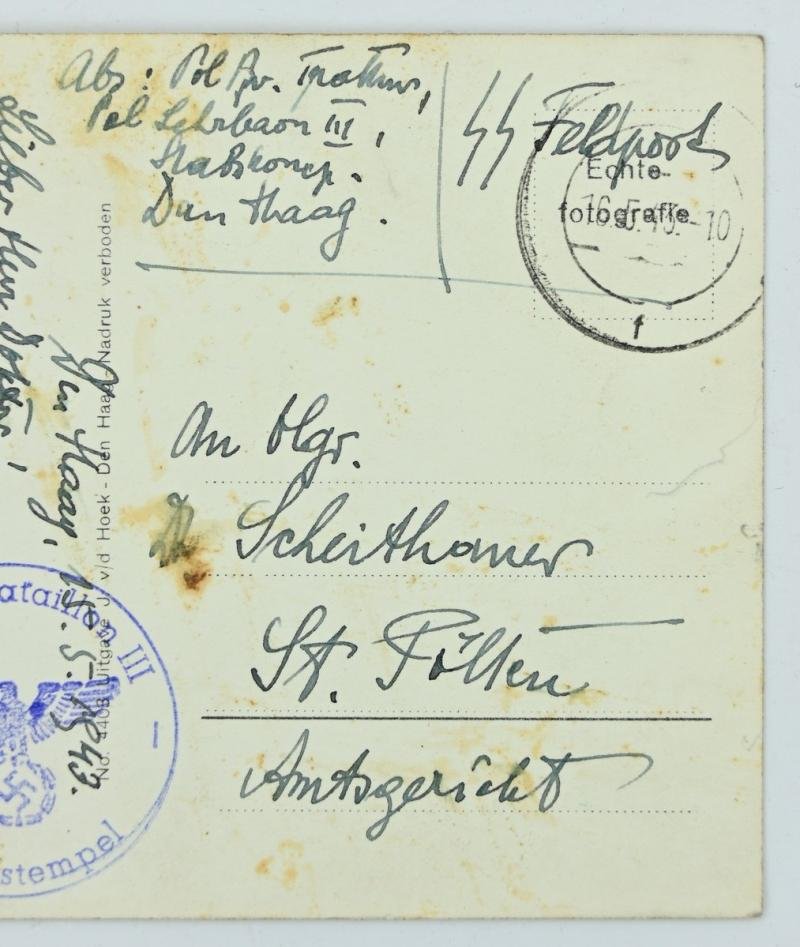 Abs: Pol Rgr.
Pol Lehrbaon III,
Stabskomp.
Den Haag.
SS Feldpost
Echte
fotografie
16.5.43.-10
f
An Olgr.
Dr Scheithauer
St. Pölten
Amtsgericht
Lieber Herr Doktor!
Den Haag, 15. 5. 1943.
No. 4403 Uitgave J. v/d Hoek - Den Haag - Nadruk verboden
ataillon III
stempel